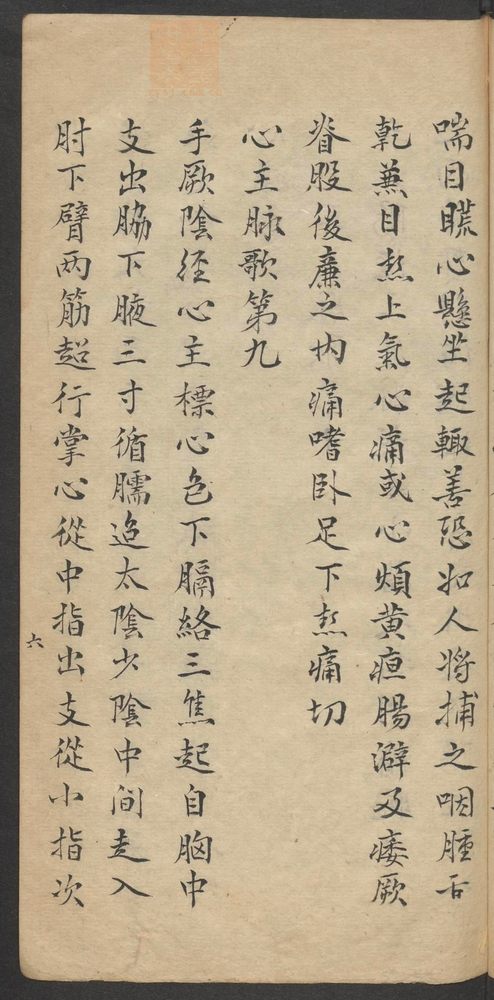 喘目䀮心懸坐起輙善恐如人將捕之咽腫舌
乾兼目𤍠上氣心痛或心煩黄疸腸澼及痿厥
脊股後廉之内痛嗜卧足下𤍠痛切
心主脉歌第九
手厥陰經心主標心包下膈絡三焦起自胸中
支出脇下腋三寸循臑迢太陰少陰中间走入
肘下臂两筋超行掌心從中指出支從小指次
六